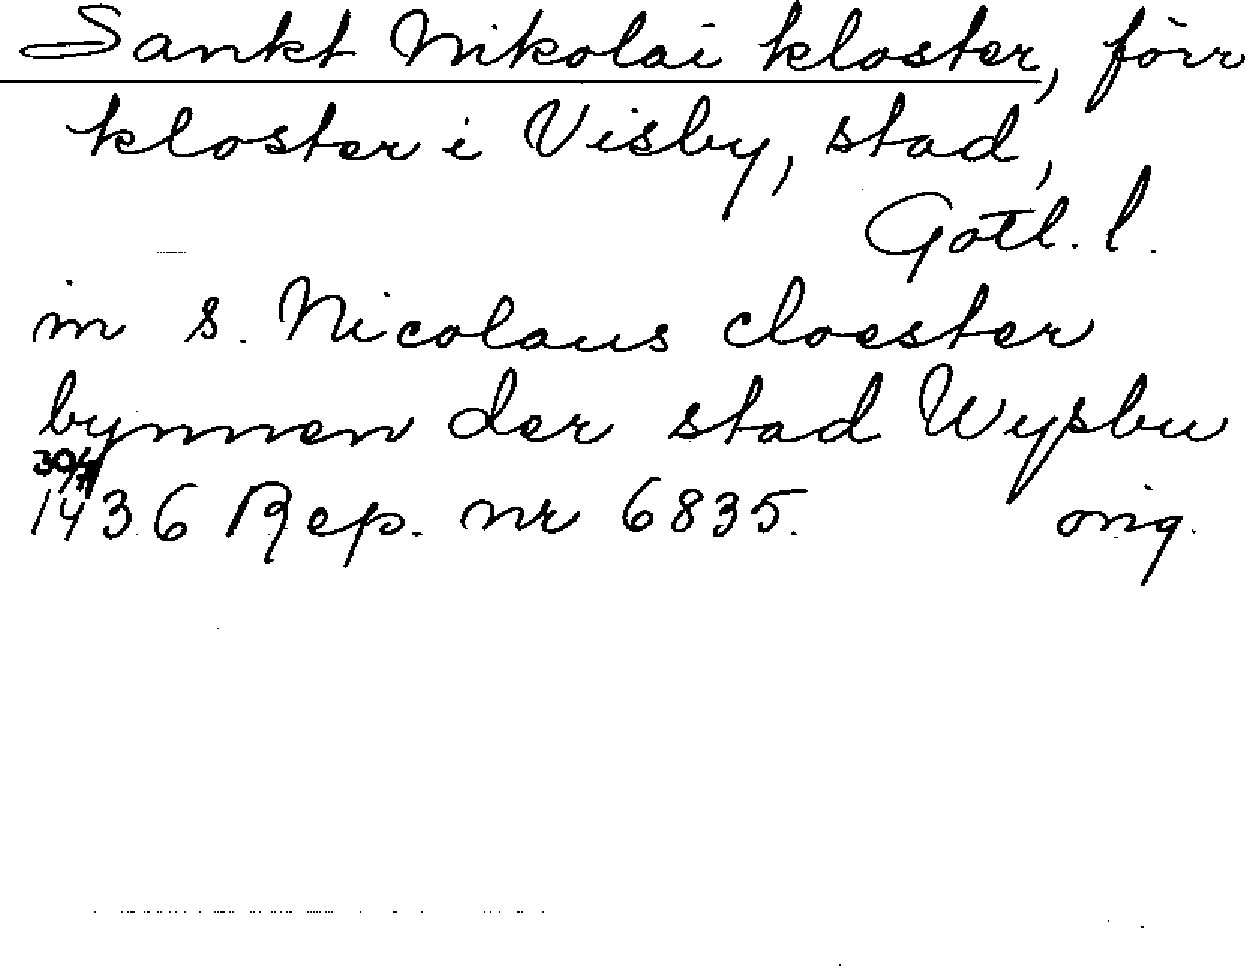 Sankt Nikolai kloster, förr
kloster i Visby, stad,
Gotl. l.
in s. Nicolaus cloester
bynnen der stad Wysbu
1436 Rep. nr 6835. orig.